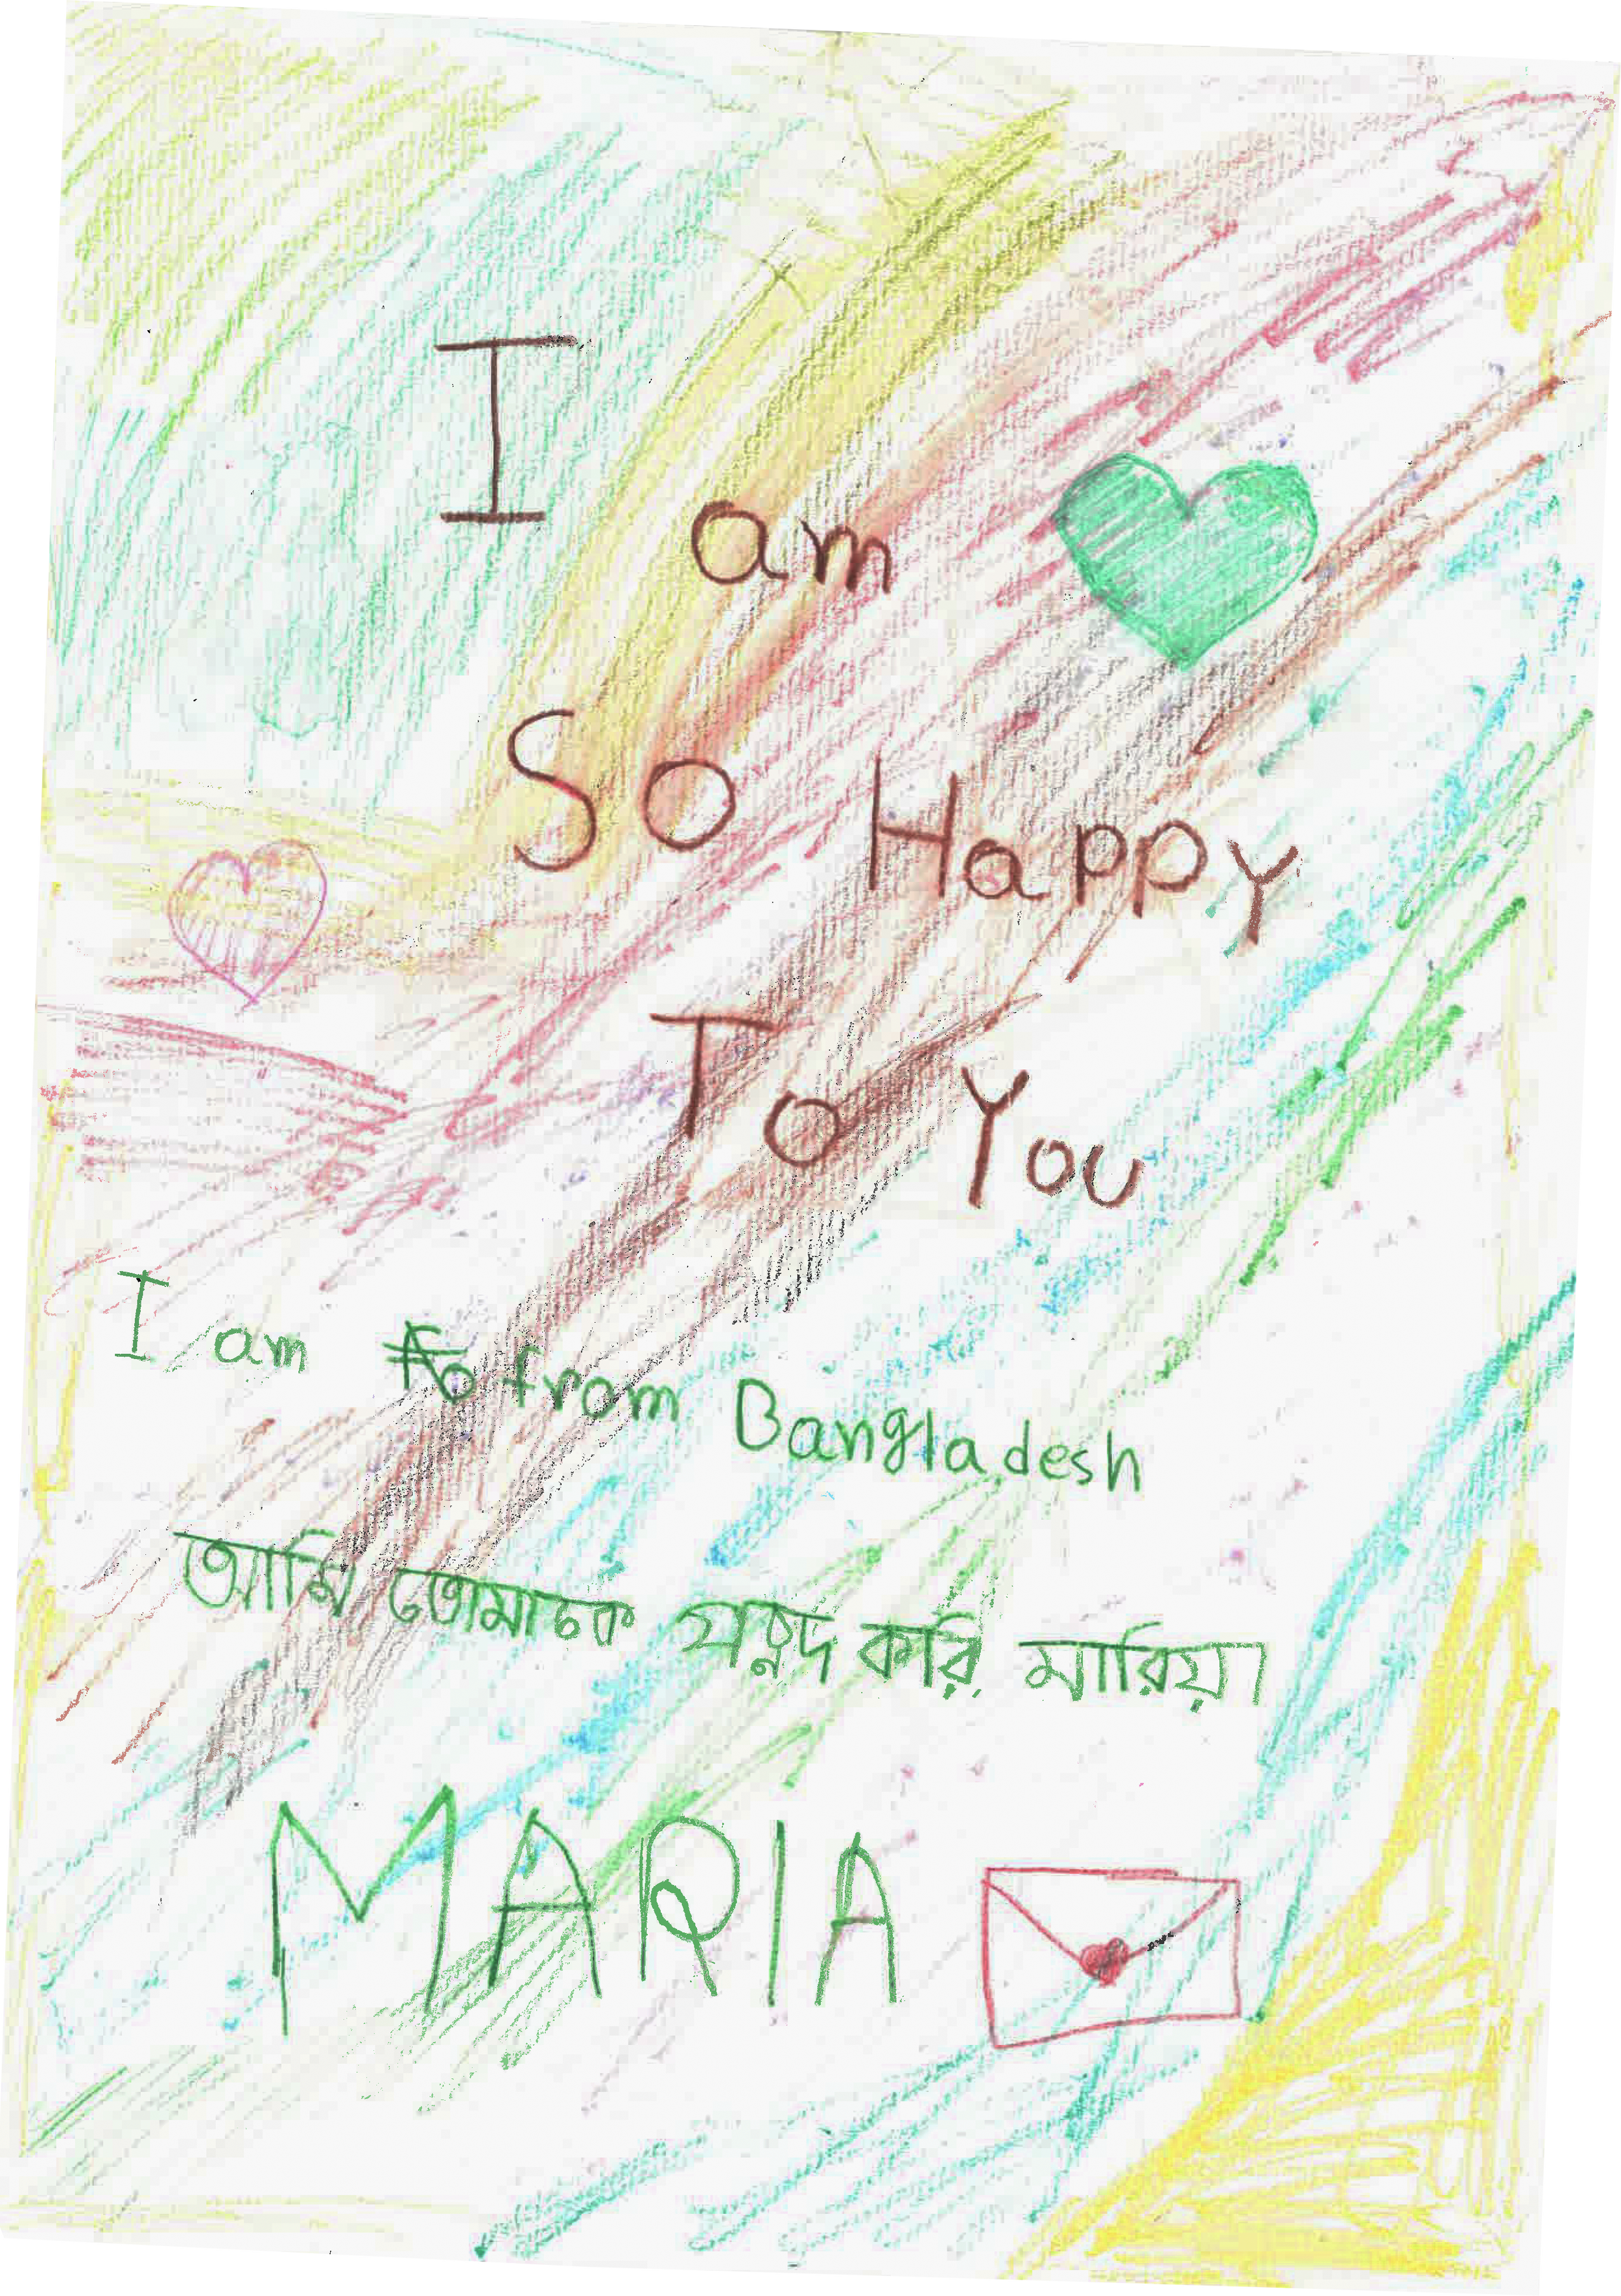 I am
So Happy
To You
I am from Bangladesh
আমি তোমাকে পছন্দ করি মারিয়া
MARIA